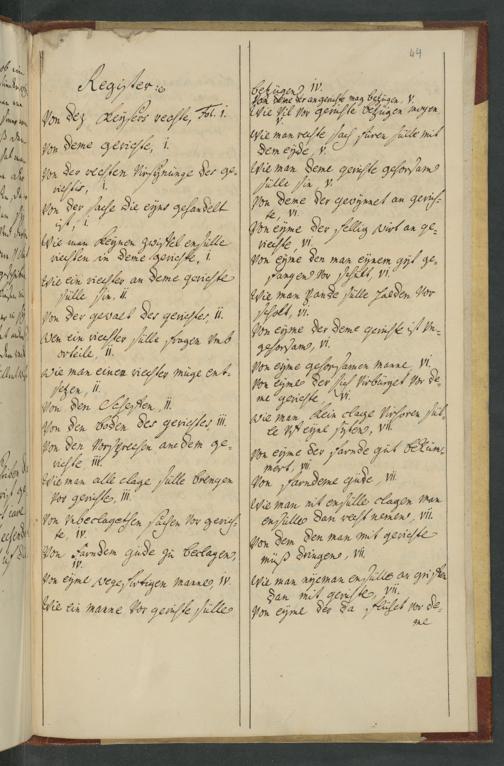 44
Register:
Von dez Keysers rechte, Fol. i.
Von deme gerichte, i.
Von der rechten Virhyninge des ge-
richtis, i.
Von der sache die eyns gehandelt
ist, i.
Wie man keynen zwistel ensulle
richten in deme gerichte, i.
Wie ein richter an deme gerichte
sulle sin, ii.
Von der gewalt des gerichtes, ii.
Wen ein richter sulle fragen umb
orteile, ii.
Wie man einen richter muge ent-
setzen, ii.
Von den Scheffen, ii.
Von den boden des gerichtes, iii.
Von den Vorsprechen an dem ge-
richte iii.
Wie man alle clage sulle brengen
vor gerichte, iii.
Von unbeclageten sachen vor gerich-
te, iv.
Von farndem gude zu beclagen,
iv.
Von eyme wegefertigen manne, iv.
Wie ein manne vor gerichte sulle
bezugen, iv.
Von deme der an gerichte mag bezugen, v.
Wie vil vor gerichte bezugen mogen
v.
Wie man rechte sach furen sulle mit
dem eyde, v.
Wie man deme gerichte gehorsam
sulle sin v.
Von deme der gewynnet an gerich-
te, vi.
Von eyme der fellig wirt an ge-
richte vi.
Von eyme den man eynem gyt ge-
fangen vor schult, vi.
Wie man pande sulle halden vor
scholt, vi.
Von eyme der deme gerichte ist un-
gehorsam, vi.
Von eyme gehorsamen manne, vi.
Von eyme der sich verburget vor de-
me gerichte, vi.
Wie man kein clage verloren sul-
le uf eyme syten, vii.
Von eyme der farnde gut bekum-
mert, vii.
Von farndeme gude, vii.
Wie man nit ensulle clagen man
ensulle dan recht nemen, vii.
Von dem den man mit gerichte
muß dringen, vii.
Wie man nyeman ensulle an gryffen
dan mit gerichte, vii.
Von eyme der da fluhet vor de-
me